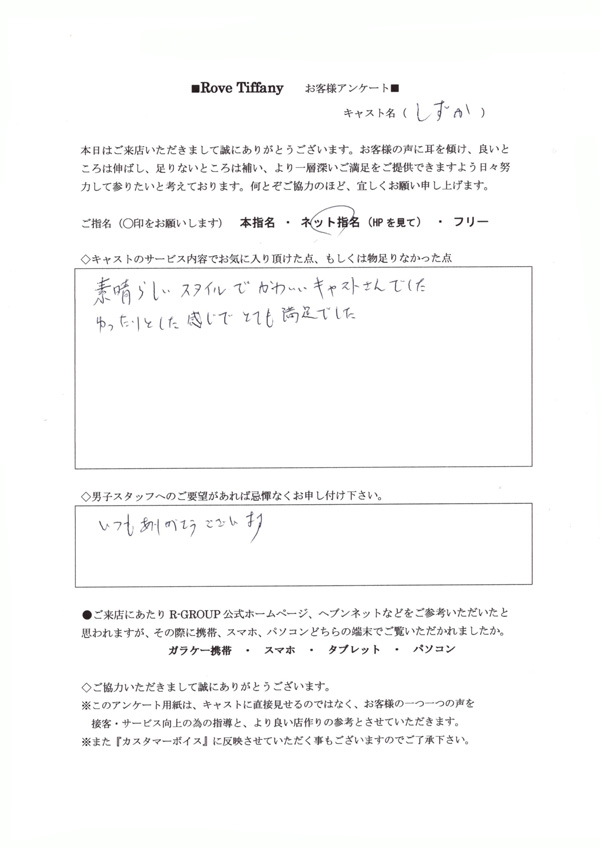 ■Rove Tiffany お客様アンケート■
キャスト名（ しずか ）
本日はご来店いただきまして誠にありがとうございます。お客様の声に耳を傾け、良いと
ころは伸ばし、足りないところは補い、より一層深いご満足をご提供できますよう日々努
力して参りたいと考えております。何とぞご協力のほど、宜しくお願い申し上げます。
ご指名（〇印をお願いします） 本指名 ・ ネット指名（HPを見て） ・ フリー
◇キャストのサービス内容でお気に入り頂けた点、もしくは物足りなかった点
素晴らしいスタイルでかわいいキャストさんでした
ゆったりとした感じでとても満足でした
◇男子スタッフへのご要望があれば忌憚なくお申し付け下さい。
いつもありがとうございます
●ご来店にあたり R-GROUP 公式ホームページ、ヘブンネットなどをご参考いただいたと
思われますが、その際に携帯、スマホ、パソコンどちらの端末でご覧いただかれましたか。
ガラケー携帯 ・ スマホ ・ タブレット ・ パソコン
◇ご協力いただきまして誠にありがとうございます。
※このアンケート用紙は、キャストに直接見せるのではなく、お客様の一つ一つの声を
接客・サービス向上の為の指導と、より良い店作りの参考とさせていただきます。
※また『カスタマーボイス』に反映させていただく事もございますのでご了承下さい。